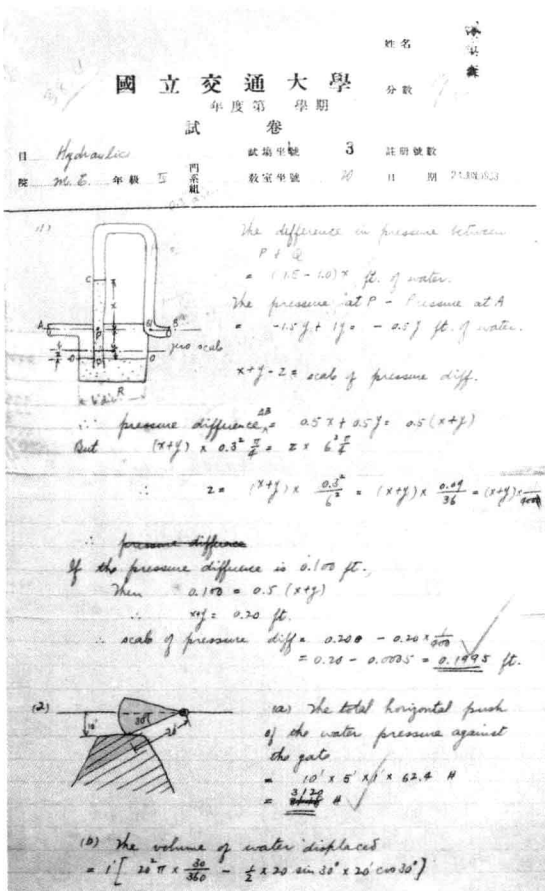 姓名
國立交通大學
分數
年度第 學期
試卷
目 Hydraulics 試場坐號 3 註冊號數
院 M.E. 年級 II 門系組 教室坐號 20 日期
(1)
The difference in pressure between
P & Q
= (1.5 - 1.0) x ft. of water.
The pressure at P - Pressure at A
= -1.5y + 1y = -0.5y ft. of water.
zero scale
x+y-z = scale of pressure diff.
∴ pressure difference AB = 0.5x + 0.5y = 0.5(x+y)
But (x+y) × 0.3² π/4 = z × 6² π/4
∴ z = (x+y) × 0.3²/6² = (x+y) × 0.09/36 = (x+y) × 1/400
∴ pressure diffrence
If the pressure difference is 0.100 ft.,
Then 0.100 = 0.5 (x+y)
∴ x+y = 0.20 ft.
∴ scale of pressure diff = 0.200 - 0.20 × 1/400
= 0.20 - 0.0005 = 0.1995 ft.
(2)
10'
30°
20'
(a) The total horizontal push
of the water pressure against
the gate
= 10' × 5' × 1' × 62.4 #
= 3120 #
(b) The volume of water displaced
= 1' [ 20² π × 30/360 - 1/2 × 20 sin 30° × 20' cos 30° ]